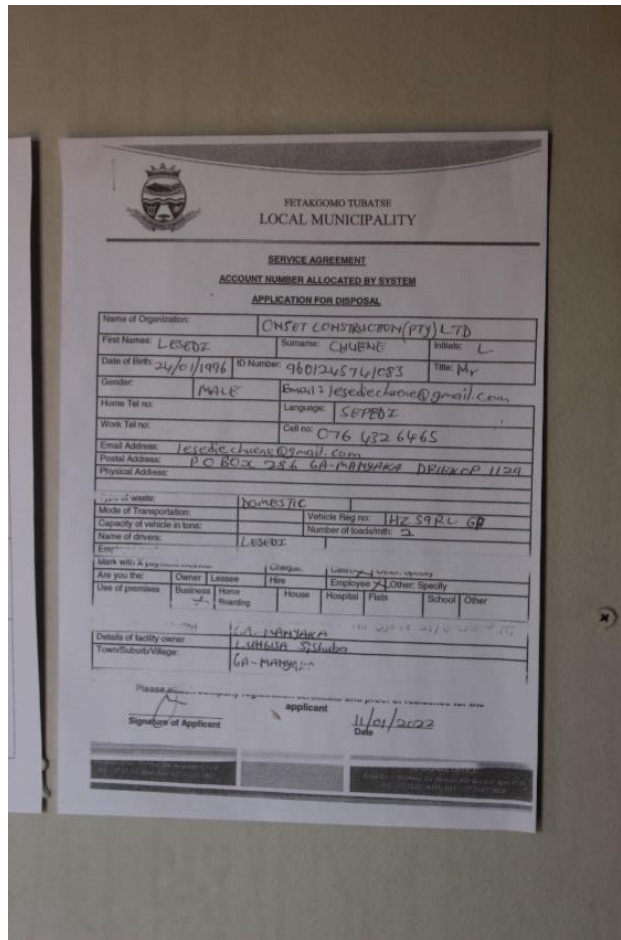 FETAKGOMO TUBATSE
LOCAL MUNICIPALITY
SERVICE AGREEMENT
ACCOUNT NUMBER ALLOCATED BY SYSTEM
APPLICATION FOR DISPOSAL
Name of Organization: ONSET CONSTRUCTION (PTY) LTD
First Names: LESEDI Surname: CHUENE Initials: L
Date of Birth: 24/01/1996 ID Number: 9601245741083 Title: Mr
Gender: MALE Email: lesediechuene@gmail.com
Home Tel no: Language: SEPEDI
Work Tel no: Cell no: 076 432 6465
Email Address: lesediechuene@gmail.com
Postal Address: P O BOX 286 GA-MANYAKA DRIEKOP 1129
Physical Address:
waste: DOMESTIC
Mode of Transportation: Vehicle Reg no: HZ 59 RL GP
Capacity of vehicle in tons: Number of loads/mth: 2
Name of drivers: LESEDI
Mark with X Cheque:
Are you the: Owner Lessee Hire Employee X Other: Specify
Use of premises Business Home Boarding House Hospital Flats School Other
GA-MANYAKA
Details of facility owner LUNGISA
Town/Suburb/Village: GA-MANYAKA
Please registration for the
applicant
Signature of Applicant 11/01/2022
Date